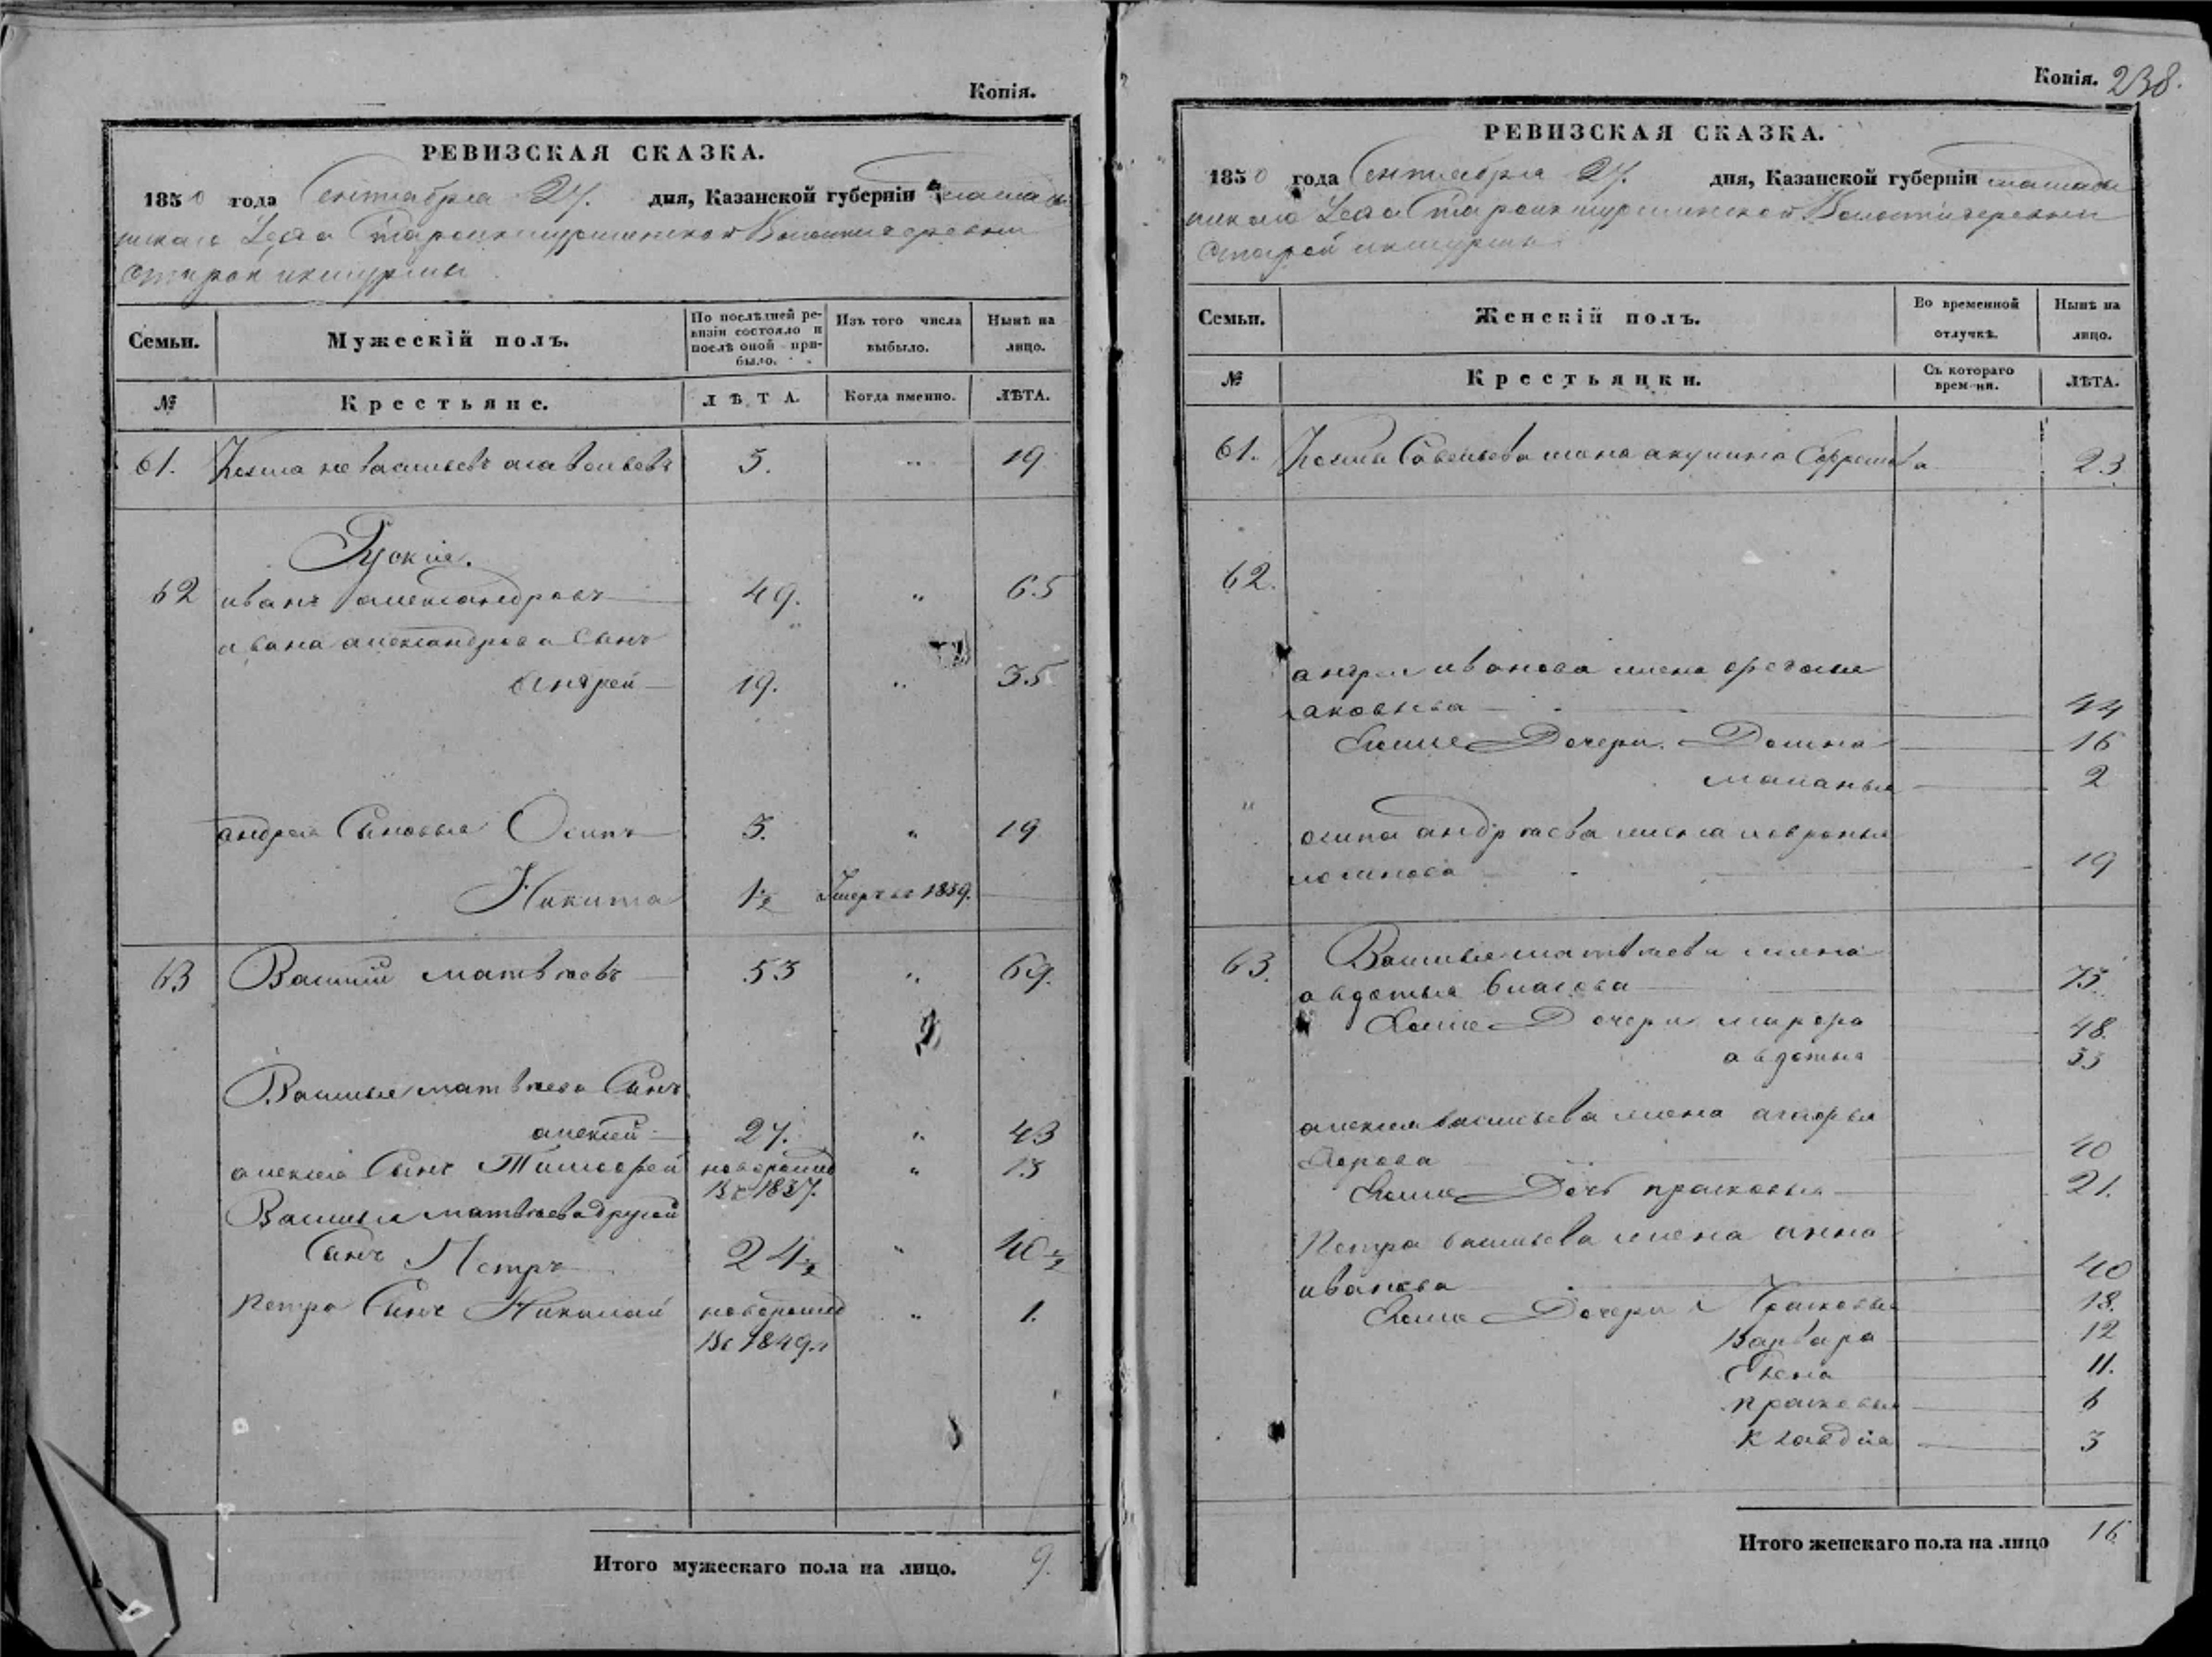 Копія.
РЕВИЗСКАЯ СКАЗКА.
1850 года Сентября 27. дня, Казанской губерніи
Волости деревни
Старой икшурмы
Семьи.
Мужескій полъ.
По послѣдней ревизіи состояло и послѣ оной прибыло.
Изъ того числа выбыло.
Нынѣ на лицо.
№
Крестьяне.
ЛѢТА.
Когда именно.
ЛѢТА.
61. Козма 3. " 19
Руские.
62 иванъ александровъ 49. " 65
ивана александрова Сынъ
Андрей 19. " 35
андрея Сыновья Осипъ 3. " 19
Никита 1½ Умеръ въ 1839.
63 Василий матвѣевъ 53 " 69.
Василья матвѣева Сынъ
алексей 27. " 43
алексея Сынъ Тимофей новорожд " 13
въ 1837.
Василья матвѣева другой
Сынъ Петръ 24½ " 40½
Петра Сынъ Николай новорожд " 1.
въ 1849.
Итого мужескаго пола на лицо. 9.
Копія. 238.
РЕВИЗСКАЯ СКАЗКА.
1850 года Сентября 27. дня, Казанской губерніи
Волости деревни
Старой икшурмы
Семьи.
Женскій полъ.
Во временной отлучкѣ.
Нынѣ на лицо.
№
Крестьянки.
Съ котораго времени.
ЛѢТА.
61. Козмы Савельева жена акулина Ефремова 23
62.
андрея иванова жена
яковлева 44
Дочери Домна 16
маланья 2
" осипа андрѣева жена
19
63. Василья матвѣева жена
авдотья власова 73
Дочери марфа 48.
авдотья 33
алексея васильева жена
40
Дочь прасковья 21.
Петра васильева жена анна
иванова 40
Дочери 18.
Варвара 12
Елена 11.
прасковья 6
клавдия 3
Итого женскаго пола на лицо 16